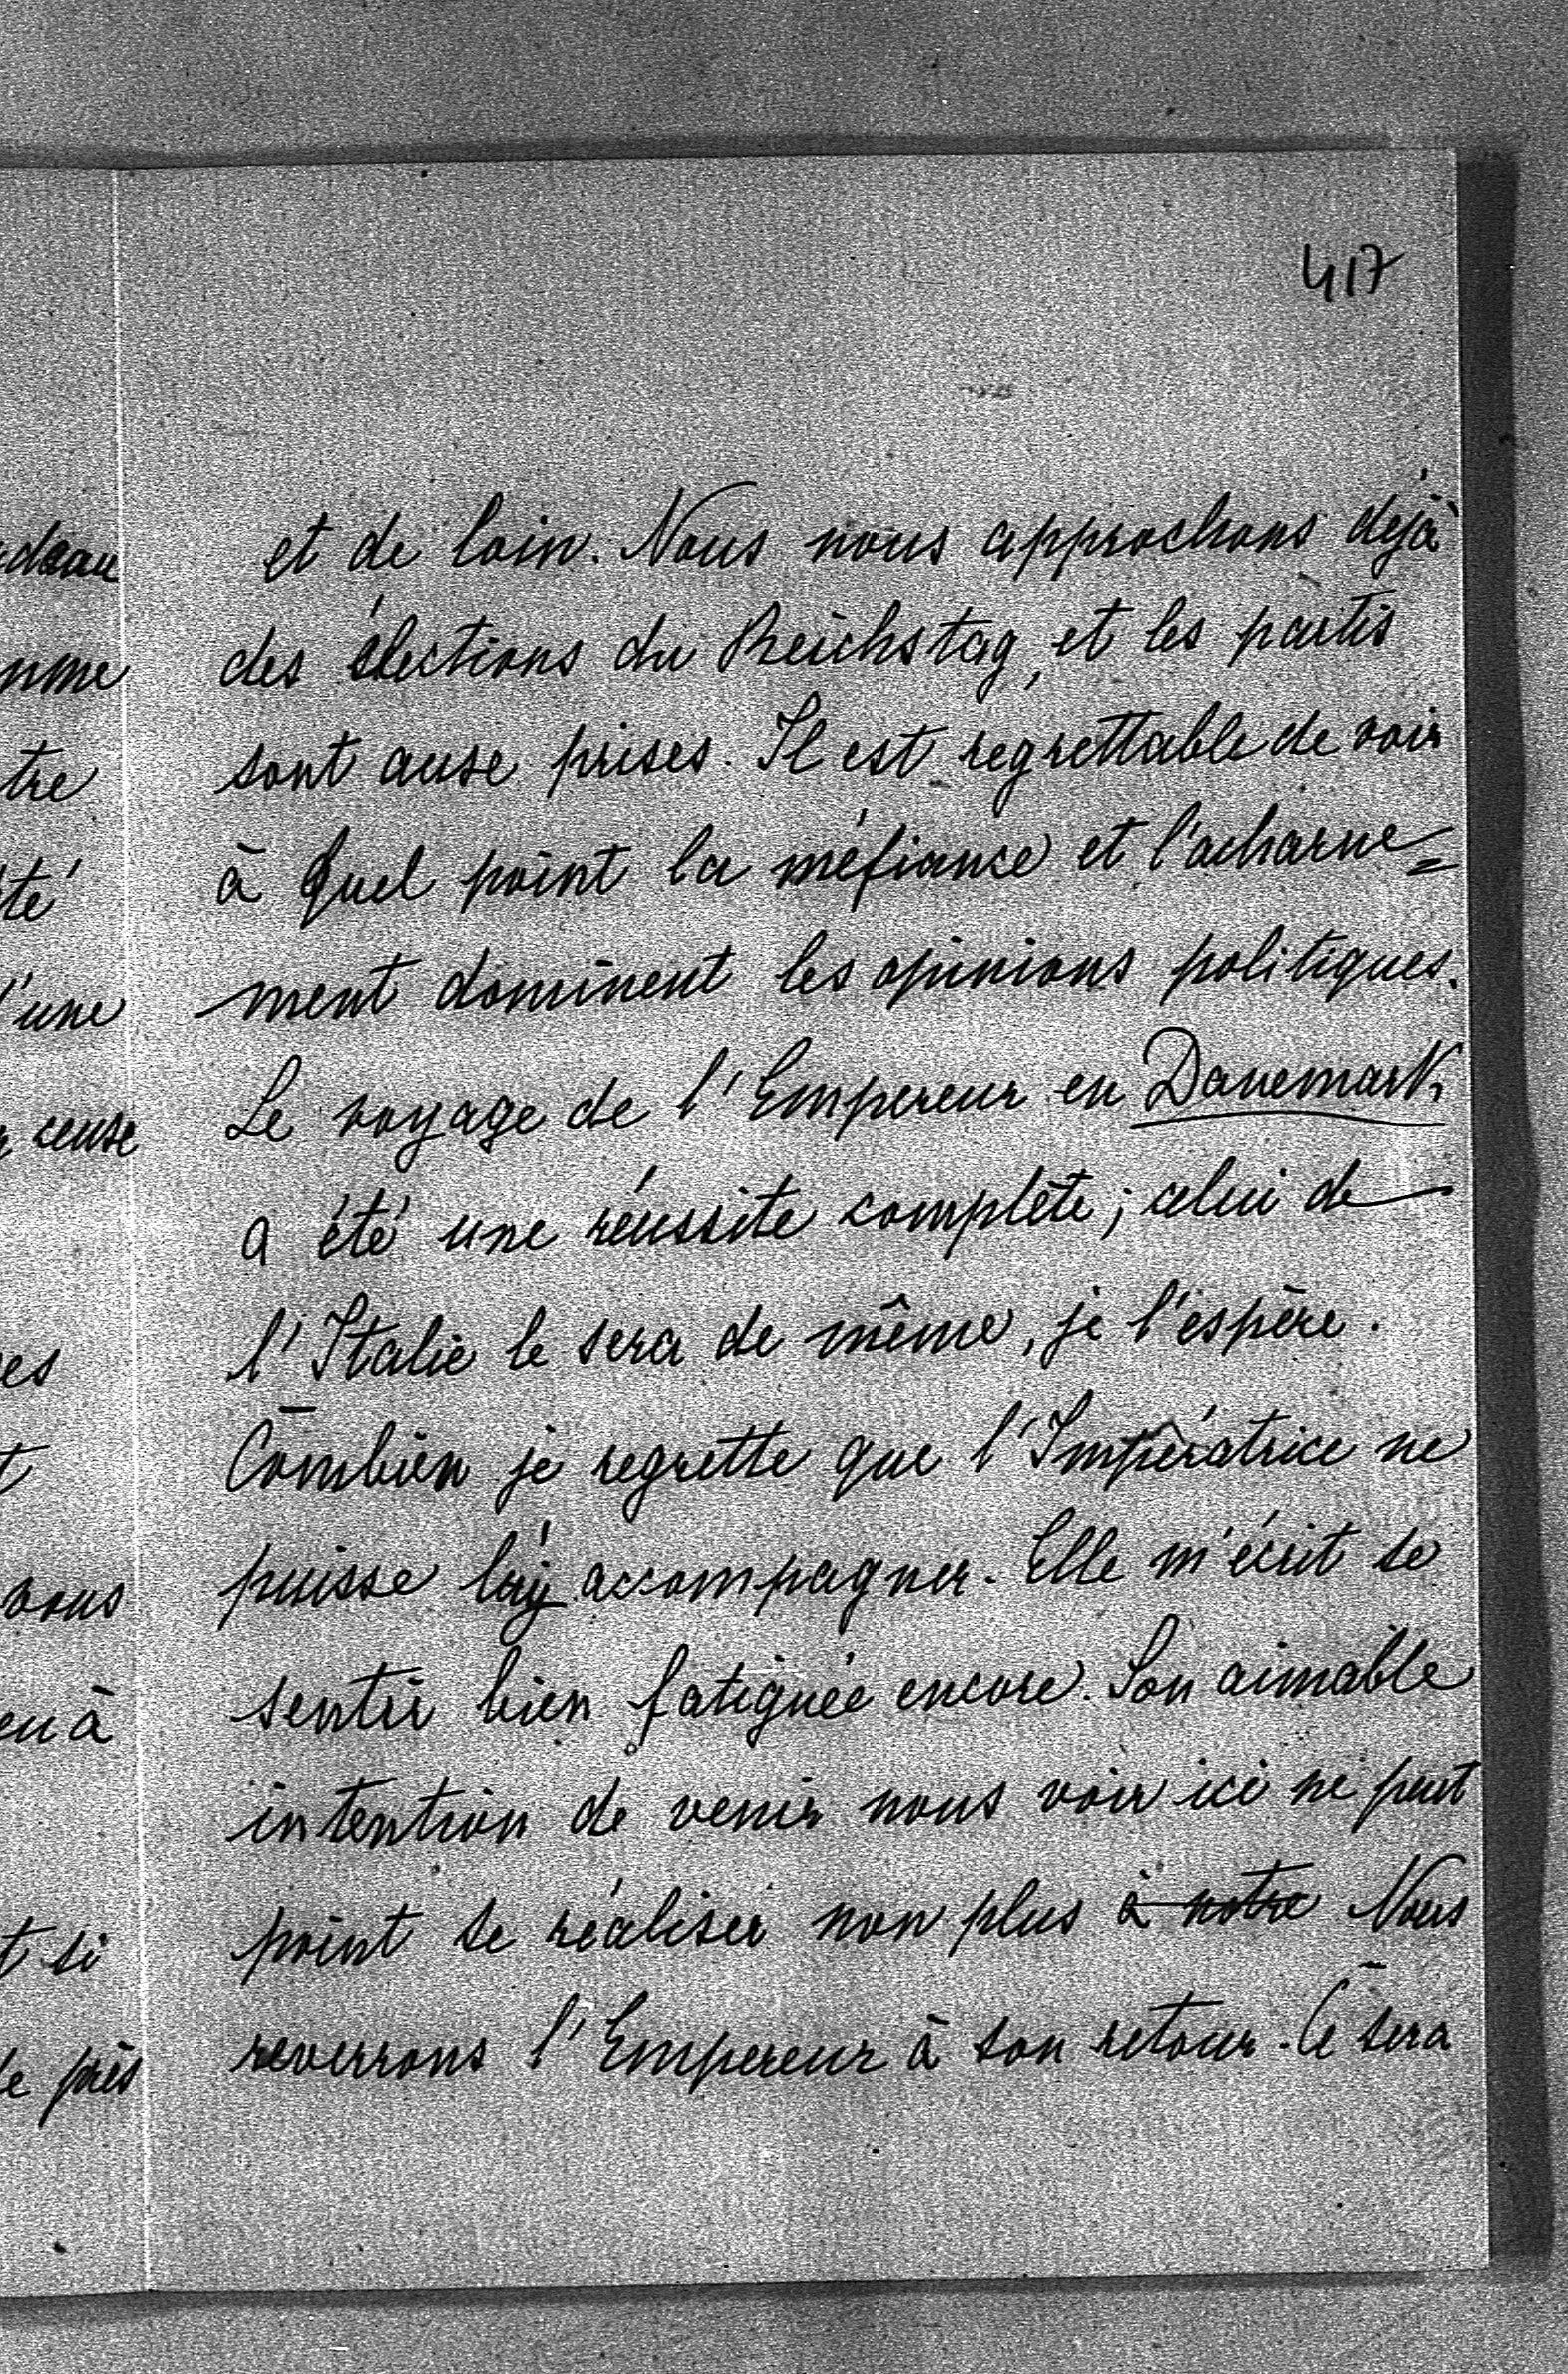 417
et de loin. Nous nous approchons déjà
des élections du Reichstag, et les partis
sont aux prises. Il est regrettable de voir
à quel point la méfiance et l'acharne=
ment dominent les opinions politiques.
Le voyage de l'Empereur en Danemark
a été une réussite complète; celui de
l'Italie le sera de même, je l'espère.
Combien je regrette que l'Impératrice ne
puisse l'y accompagner. Elle m'écrit se
sentir bien fatiguée encore. Son aimable
intention de venir nous voir ici ne peut
point se réaliser non plus à notre Nous
reverrons l'Empereur à son retour. Ce sera